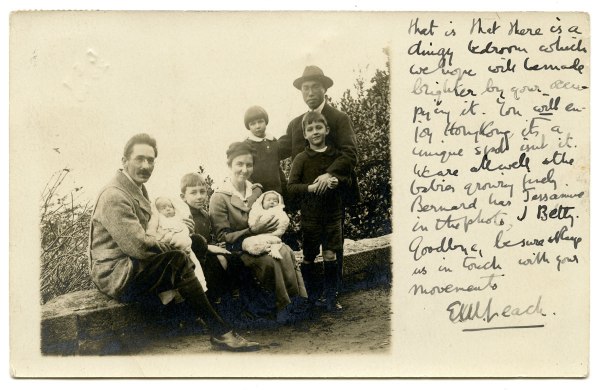 that is that there is a
dingy bedroom which
we hope will be made
brighter by your occu-
pying it. You will en-
joy HongKong, its a
unique spot isn't it.
We are all well & the
babies growing finely.
Bernard has Jessamine
in the photo, I Betty.
Goodbye, be sure & keep
us in touch with your
movements
Leach.